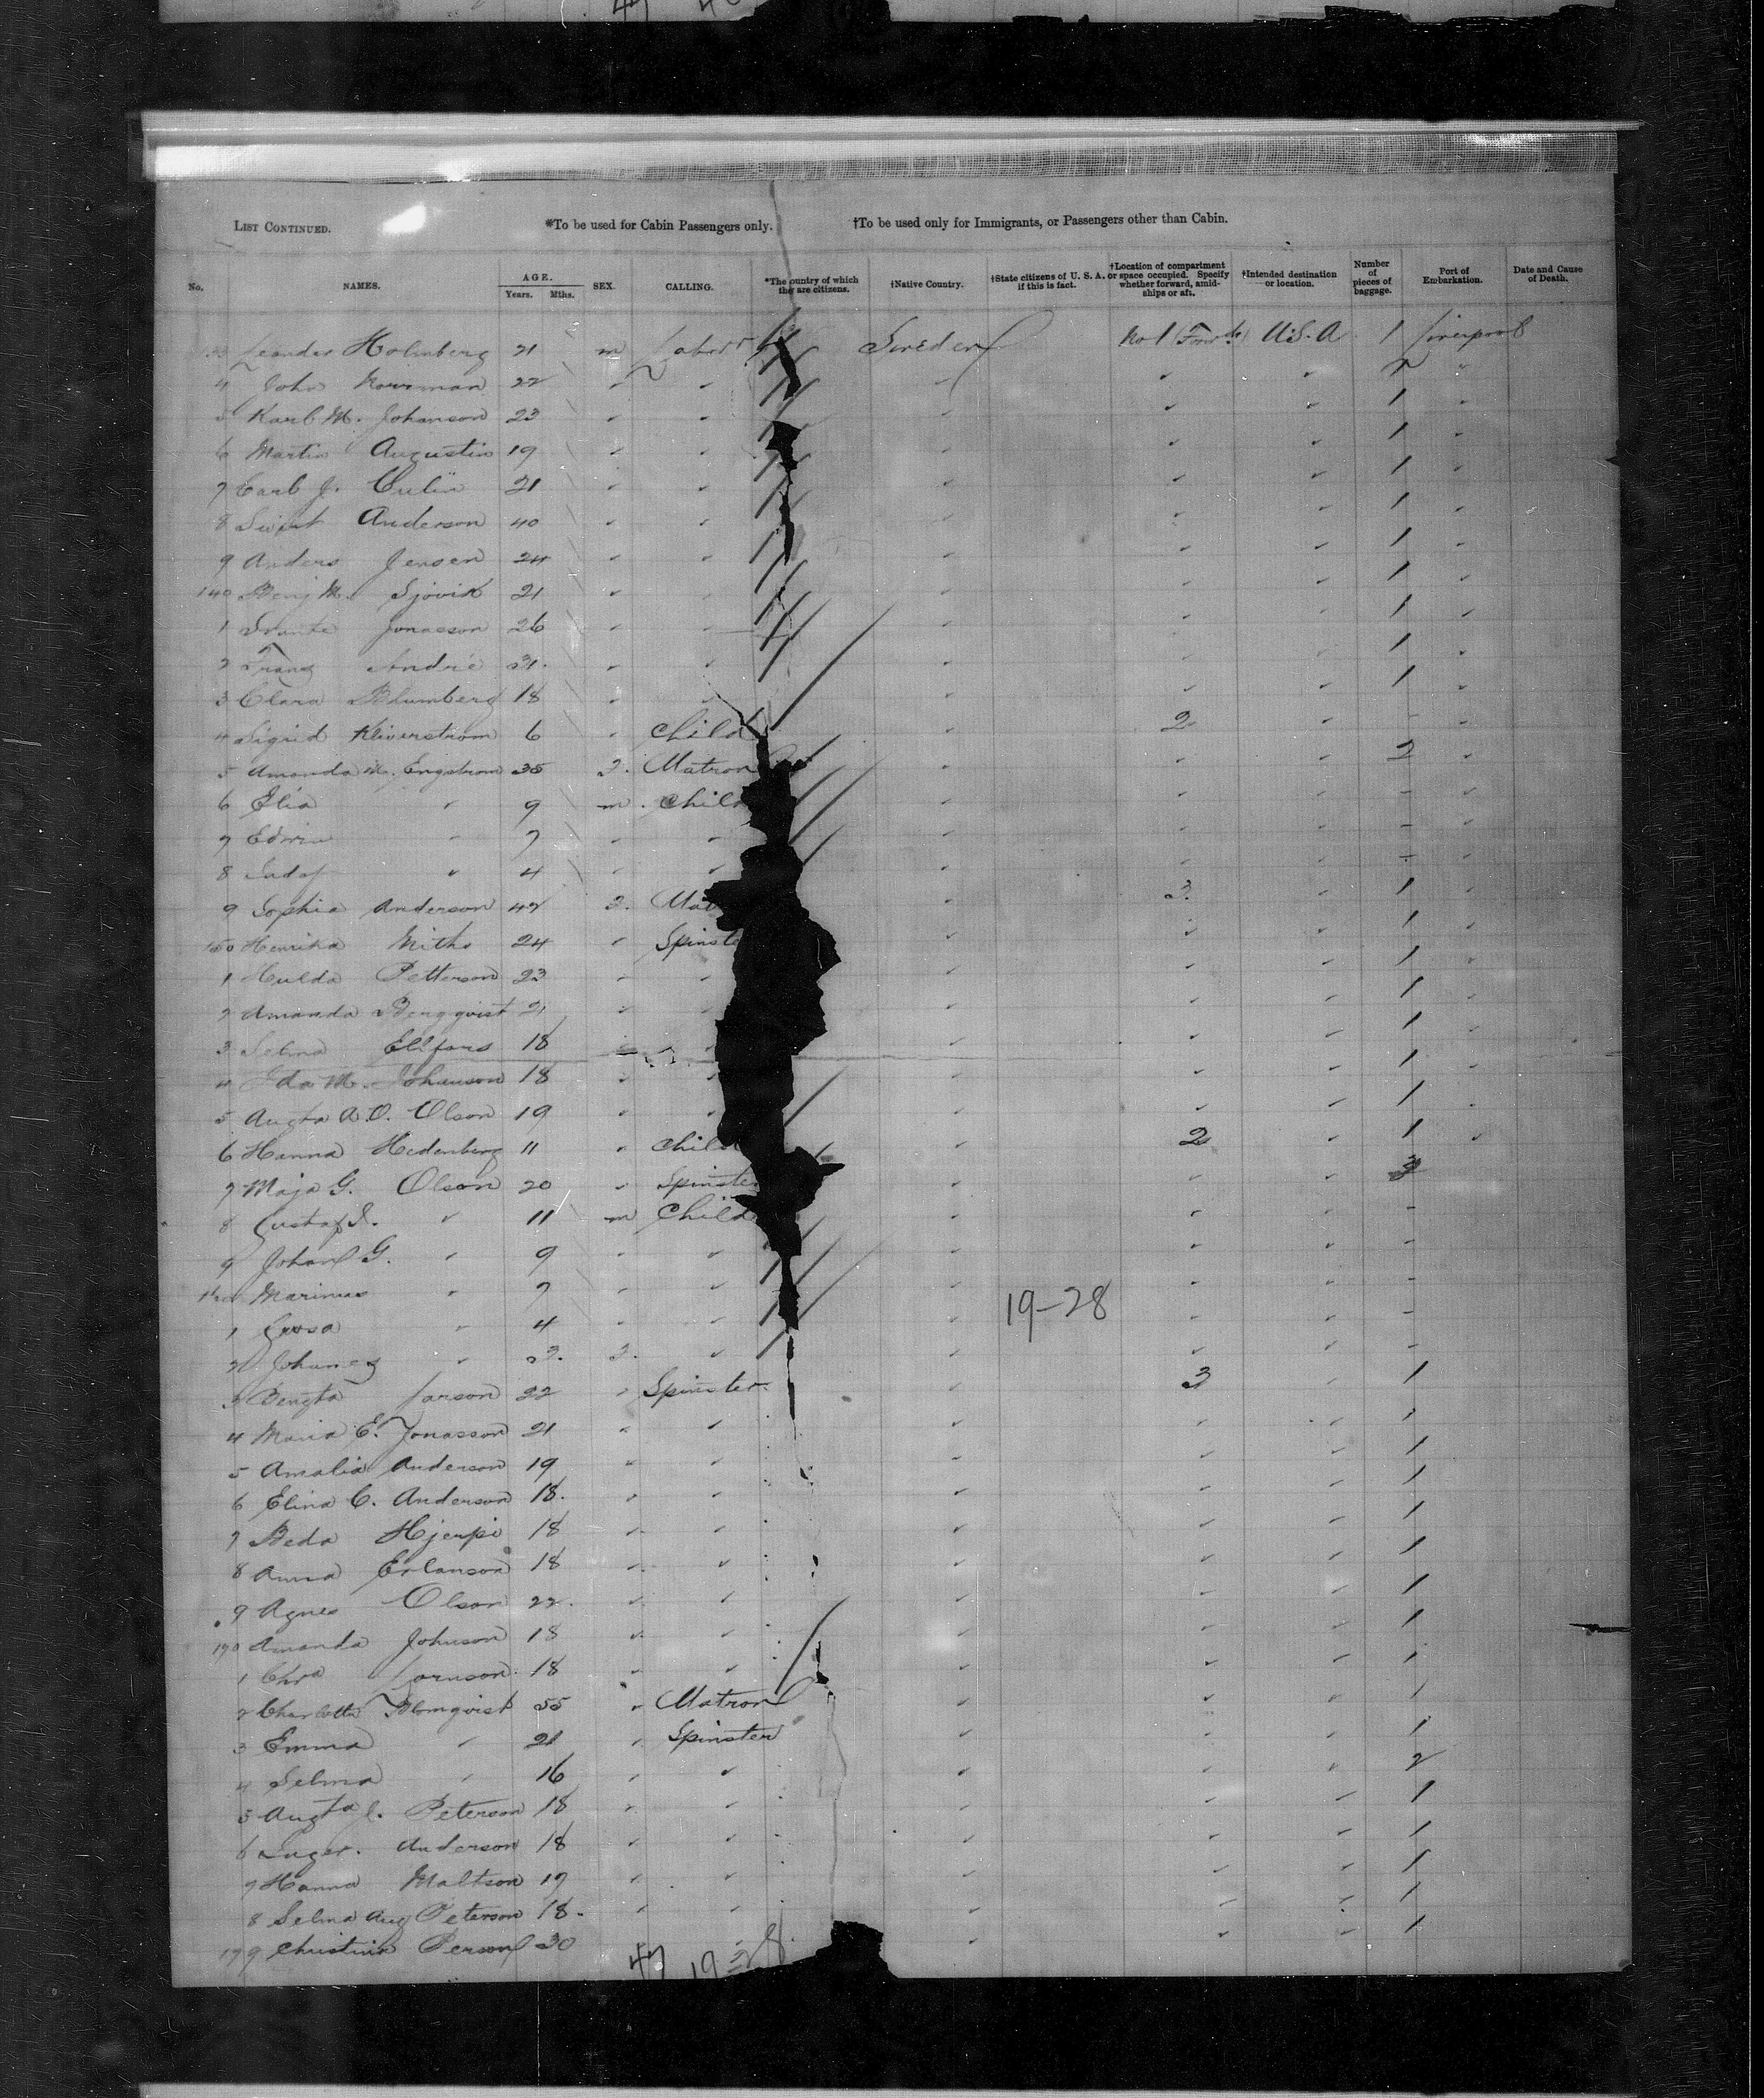 47
LIST CONTINUED. *To be used for Cabin Passengers only. †To be used only for Immigrants, or Passengers other than Cabin.
No. NAMES. AGE. Years. Mths. SEX. CALLING. *The country of which they are citizens. †Native Country. †State citizens of U. S. A. if this is fact. †Location of compartment or space occupied. Specify whether forward, amidships or aft. †Intended destination or location. Number of pieces of baggage. Port of Embarkation. Date and Cause of Death.
33 Leander Holmberg 21 m Labor Sweden No 1 (Forwd) U.S.A 1 Liverpool
4 John Norrman 22 " " " " " 1 "
5 Karl M. Johanson 23 " " " " " 1 "
6 Martin Augustin 19 " " " " " 1 "
7 Carl J. 21 " " " " " 1 "
8 Anderson 40 " " " " " 1 "
9 Anders Jensen 24 " " " " " 1 "
140 Benj M. Sjovik 21 " " " " " 1 "
1 Svante Jonasson 26 " " " " " 1 "
2 Franz Andrie 31. " " " " " 1 "
3 Clara Blumberg 18 " " " " " 1 "
4 Sigrid 6 " Child " 2 " - "
5 Amanda M. Engstrom 35 f. Matron " " " 2 "
6 Elia " 9 m. Child " " " - "
7 Edwin " 7 " " " " " - "
8 " 4 " " " " " - "
9 Sophia Anderson 42 f. Mat " 3. " 1 "
150 Henrika 24 " Spinste " " " 1 "
1 Hulda Petterson 23 " " " " " 1 "
2 Amanda Bergqvist 21 " " " " " 1 "
3 Selma Ellfors 18 " " " " " 1 "
4 Ida M. Johanson 18 " " " " " 1 "
5 Augta A.O. Olson 19 " " " " " 1 "
6 Hanna Hedenberg 11 " Child " 2 " 1 "
7 Maja G. Olson 20 " Spinster " " " 3
8 Gustaf I. " 11 m Child " " " -
9 Johan G. " 9 " " " " " -
160 Marinus " 7 " " " " " -
1 " 4 " " " 19-28 " " -
2 " 3. f. " " " " -
3 Bengta Larson 22 " Spinster. " 3 " 1
4 Maria E. Jonasson 21 " " " " " 1
5 Amalia Anderson 19 " " " " " 1
6 Elina C. Anderson 18. " " " " " 1
7 Beda Hjerpi 18 " " " " " 1
8 Anna Erlanson 18 " " " " " 1
9 Agnes Olson 22. " " " " " 1
170 Amanda Johnson 18 " " " " " 1
1 Larnson. 18 " " " " " 1
2 Charlotta Blomqvist 55 " Matron " " " 1
3 Emma " 21 " Spinster " " " 1
4 Selma " 16 " " " " " 2
5 Augta J. Peterson 18 " " " " " 1
6 Inger. Anderson 18 " " " " " 1
7 Hanna Maltson 19 " " " " " 1
8 Selma Aug Peterson 18. " " " " " 1
179 Christina Person 30 " " " " 1
47 19 28